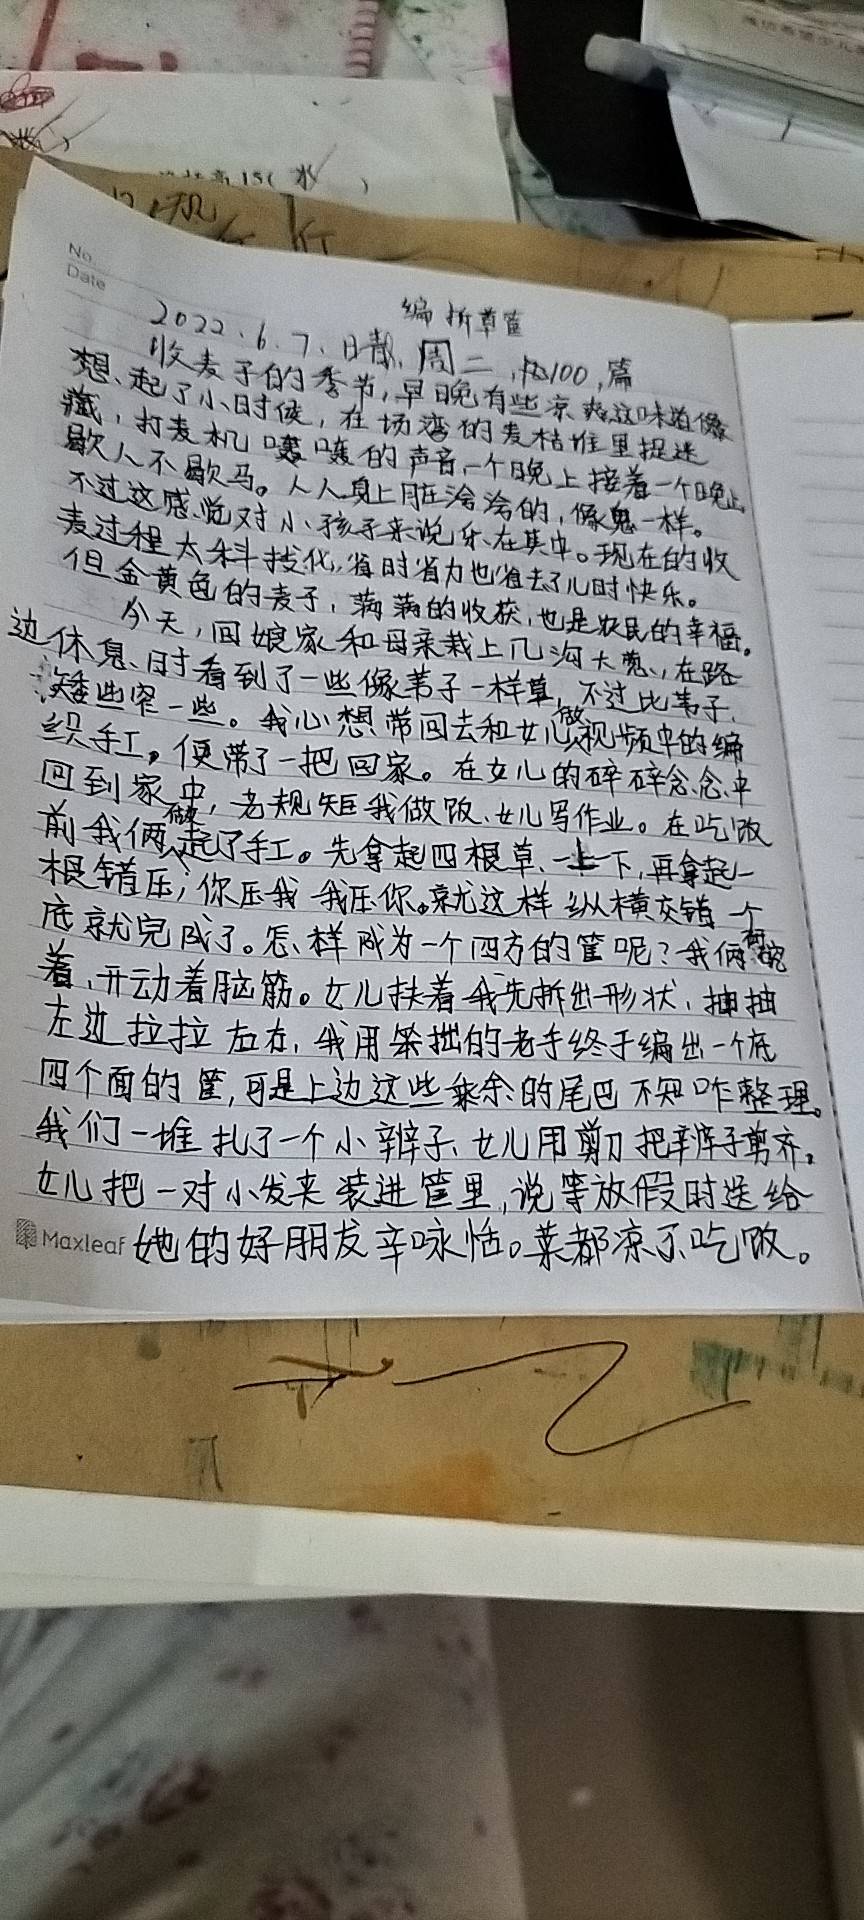 No.
Date
编折草筐
2022.6.7.日晴.周二,100,篇
收麦子的季节,早晚有些凉爽这味道像
想、起了小时候,在场湾的麦秸堆里捉迷
藏,打麦机嚄嚄的声音,一个晚上接着一个晚上
歇人不歇马。人人身上脏洽洽的,像鬼一样。
不过这感觉对小孩子来说乐在其中。现在的收
麦过程太科技化,省时省力也省去了儿时快乐。
但金黄色的麦子,满满的收获,也是农民的幸福。
今天,回娘家和母亲栽上几沟大葱,在路
边休息、时看到了一些像苇子一样草,不过比苇子
矮些窄一些。我心想带回去和女儿做视频中的编
织手工,便带了一把回家。在女儿的碎碎念、念、中
回到家中,老规矩我做饭、女儿写作业。在吃饭
前我俩做起了手工。先拿起四根草、一上一下,再拿起一
根错压,你压我我压你。就这样纵横交错一个
底就完成了。怎、样成为一个四方的筐呢?我俩
着、开动着脑筋。女儿扶着我先折出形状,抽抽
左边拉拉右右,我用笨拙的老手终于编出一个底
四个面的筐,可是上边这些剩余的尾巴不知咋整理。
我们一堆扎了一个小辫子、女儿用剪刀把辫子剪齐。
女儿把一对小发夹装进筐里,说等放假时送给
Maxleaf 她的好朋友辛咏恬。菜都凉了、吃饭。